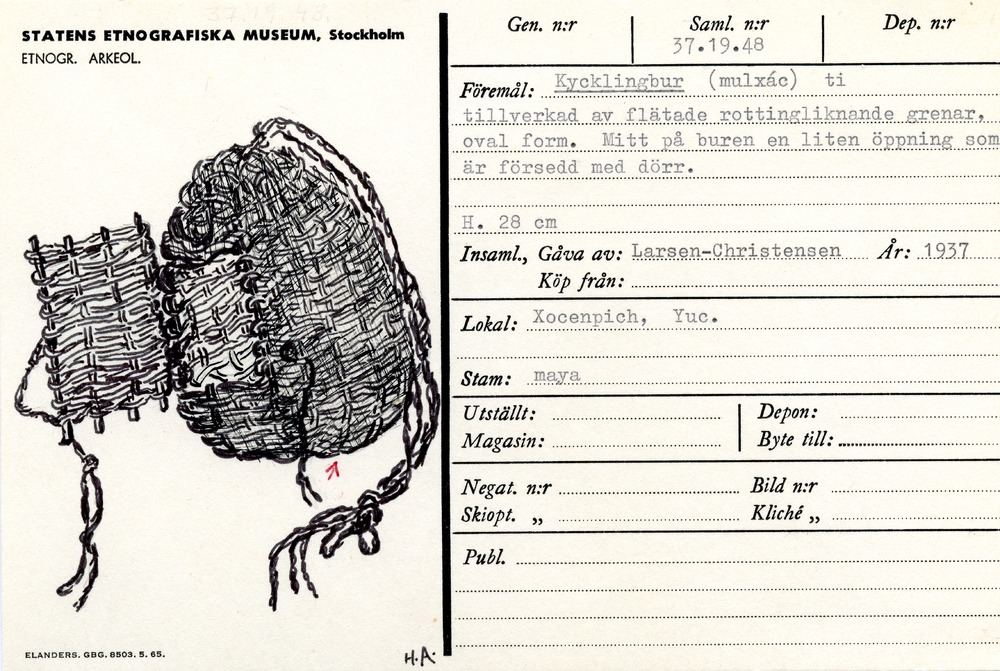 37.19.48.
STATENS ETNOGRAFISKA MUSEUM, Stockholm
ETNOGR. ARKEOL.
ELANDERS. GBG. 8503. 5. 65.
H.A.
Gen. n:r Saml. n:r Dep. n:r
37.19.48
Föremål: Kycklingbur (mulxác) ti
tillverkad av flätade rottingliknande grenar,
oval form. Mitt på buren en liten öppning som
är försedd med dörr.
H. 28 cm
Insaml., Gåva av: Larsen-Christensen År: 1937
Köp från:
Lokal: Xocenpich, Yuc.
Stam: maya
Utställt: Depon:
Magasin: Byte till:
Negat. n:r Bild n:r
Skiopt. „ Kliché „
Publ.